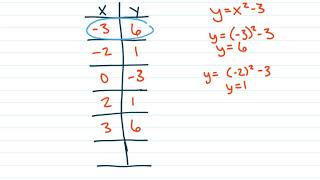 X Y
-3 6
-2 1
0 -3
2 1
3 6
y=x²-3
y=(-3)²-3
y=6
y= (-2)²-3
y=1